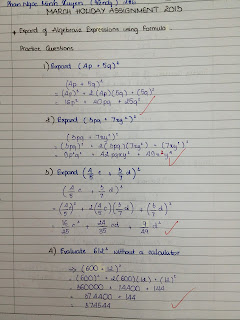 Phan Ngọc Minh Xuyen (Wendy)
MARCH HOLIDAY ASSIGNMENT 2013
* Expand of Algebraic Expressions using Formula
Practice Questions
1) Expand (4p + 5q)²
(4p + 5q)²
= (4p)² + 2(4p)(5q) + (5q)²
= 16p² + 40pq + 25q²
2) Expand (3pq + 7xy²)²
(3pq + 7xy²)²
= (3pq)² + 2(3pq)(7xy²) + (7xy²)²
= 9p²q² + 42pqxy² + 49x²y⁴
3) Expand (4/5 c + 3/7 d)²
(4/5 c + 3/7 d)²
= (4/5 c)² + 2(4/5 c)(3/7 d) + (3/7 d)²
= 16/25 c² + 24/35 cd + 9/49 d²
4) Evaluate 612² without a calculator
⇒ (600 + 12)²
= (600)² + 2(600)(12) + (12)²
= 360000 + 14400 + 144
= 374400 + 144
= 374544